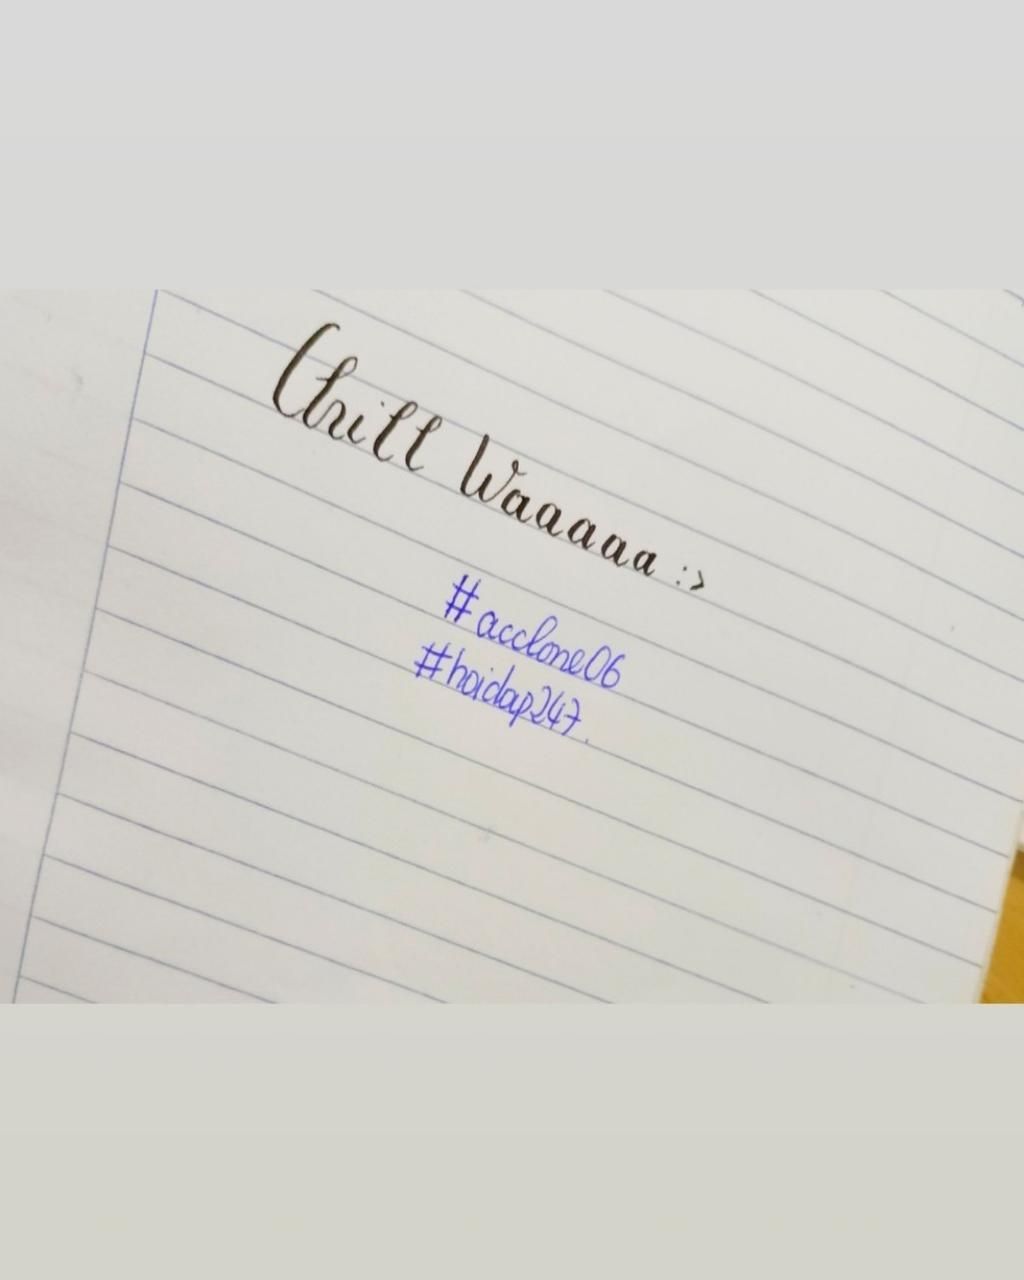 Chill Waaaaa :>
#acclone06
#hoidap247.